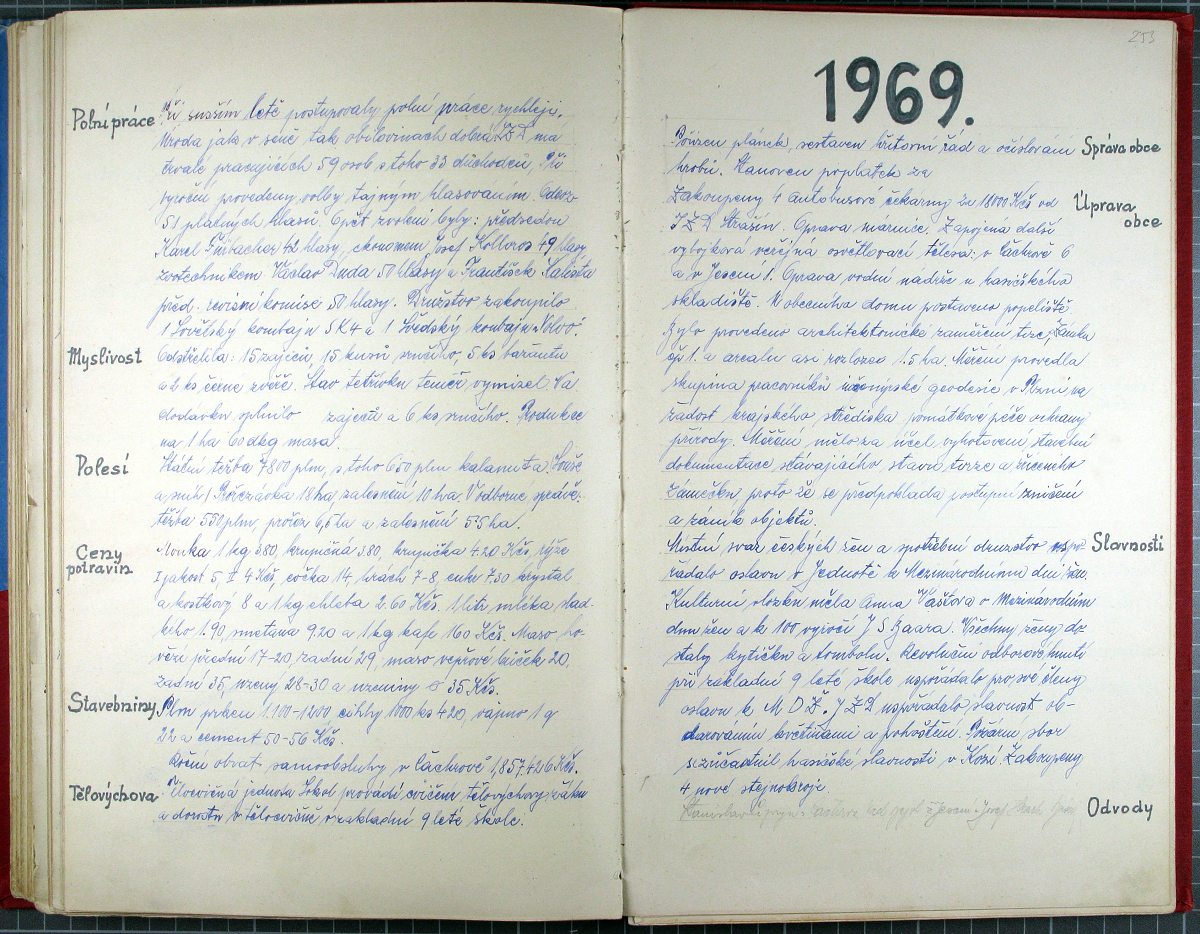 Polní práce
Při sušším letě postupovaly polní práce rychleji.
Úroda jata v seně tak obilovinach dobrá. JZD ma
trvale pracujících 59 osob s toho 33 důchodců, Při
vyroční provedeny volby tajným hlasováním. Odevz
51 platných hlasů. Opět zvoleni byly: předsedou
Karel 48 hlasy, ekonomem Josef Kolloros 49 hlasy,
zootechnikem Václav Duda 50 hlasy a František Kalista
před. revisní komise 50 hlasy. Družstvo zakoupilo
1 Sovětský kombajn SK4 a 1 Švédský kombajn Volvo.
Myslivost
Odstřelila: 15 zajíců, 15 kusů srnčího, 5 ks bažantu
a 2 ks černe zvěře. Stav tetřívku teměř vymizel. Na
dodavku splnilo zajeců a 6 ks srnčího. Produkce
na 1 ha 60 dkg masa.
Polesí
Státní těžba 7800 plm, s toho 650 plm kalamita (Souše
a sníh) Prořezávka 18 ha, zalesnění 10 ha. V odborné správě:
těžba 550 plm, prořez 6,5 ha a zalesnění 5.5 ha.
Ceny potravin
Mouka 1 kg 380, krupičná 380, krupička 4.20 Kčs, rýže
I jakost 5, II 4 Kčs, čočka 14, hrách 7-8, cukr 7.30 krystal
a kostkový 8 a 1 kg chleba 2.60 Kčs. 1 litr mléka slad-
keho 1.90, smetana 9.20 a 1 kg kafe 160 Kčs. Maso, ho-
vězí přední 17-20, zadní 29, maso vepřové bůček 20.
zadní 35, uzeny 28-30 a uzeniny 35 Kčs.
Stavebniny
Plm prken 1.100-1200, cihly 1000 ks 420, vápno 1 q
22 a cement 50-56 Kčs.
Roční obrat samoobsluhy v Čachrově 1,857.426 Kčs.
Tělovýchova
Tělocvičná jednota Sokol provádí cvičení tělovýchovy, žáků
a dorostu v tělocvičně v základní 9 leté škole.
253
1969.
Správa obce
Pořízen plánek, sestaven hřbitovní řád a očíslovaní
hrobů. Stanoven poplatek za
Úprava obce
Zakoupeny 4 autobusové čekarny za 18800 Kčs od
JZD Strašín. Oprava márnice. Zapojena další
vybojková veřejná osvětlovací tělesa: v Čachrově 6
a v Jesení 1. Oprava vodní nadrže u hasičského
skladiště. U obecního domu postaveno popeliště
Bylo provedeno architektonické zaměření tvrze, Zamku
čp 1. a arealu asi rozloze 1.5 ha. Měření provedla
skupina pracovníků inženyrské geodesie v Plzni na
žadost krajského střediska památkové péče ochrany
přírody. Měření mělo za účel vyhotovení stavební
dokumentace stávajícího stavu tvrze a zříceného
zámečku, proto že se předpoklada postupní zničení
a zánik objektů.
Slavnosti
Místní svaz českých žen a spotřební druzstvo uspo-
řádalo oslavu v Jednotě k Mezinárodnímu dni žen.
Kulturní vložku měla Anna Vaštova o Mezinárodním
dnu žen a k 100 vyročí J S Baara. Všechny ženy do-
staly kytičku a tombolu. Revoluční odborové hnutí
při základní 9 leté škole uspořádalo pro své členy
oslavu k M D Ž. JZD uspořádalo slavnost ob-
darováním květinami a pohoštění. Požární sbor
se zůčastnil hasičské slavnosti v Koží Zakoupeny
4 nové stejnokroje.
Odvody
Stanislav